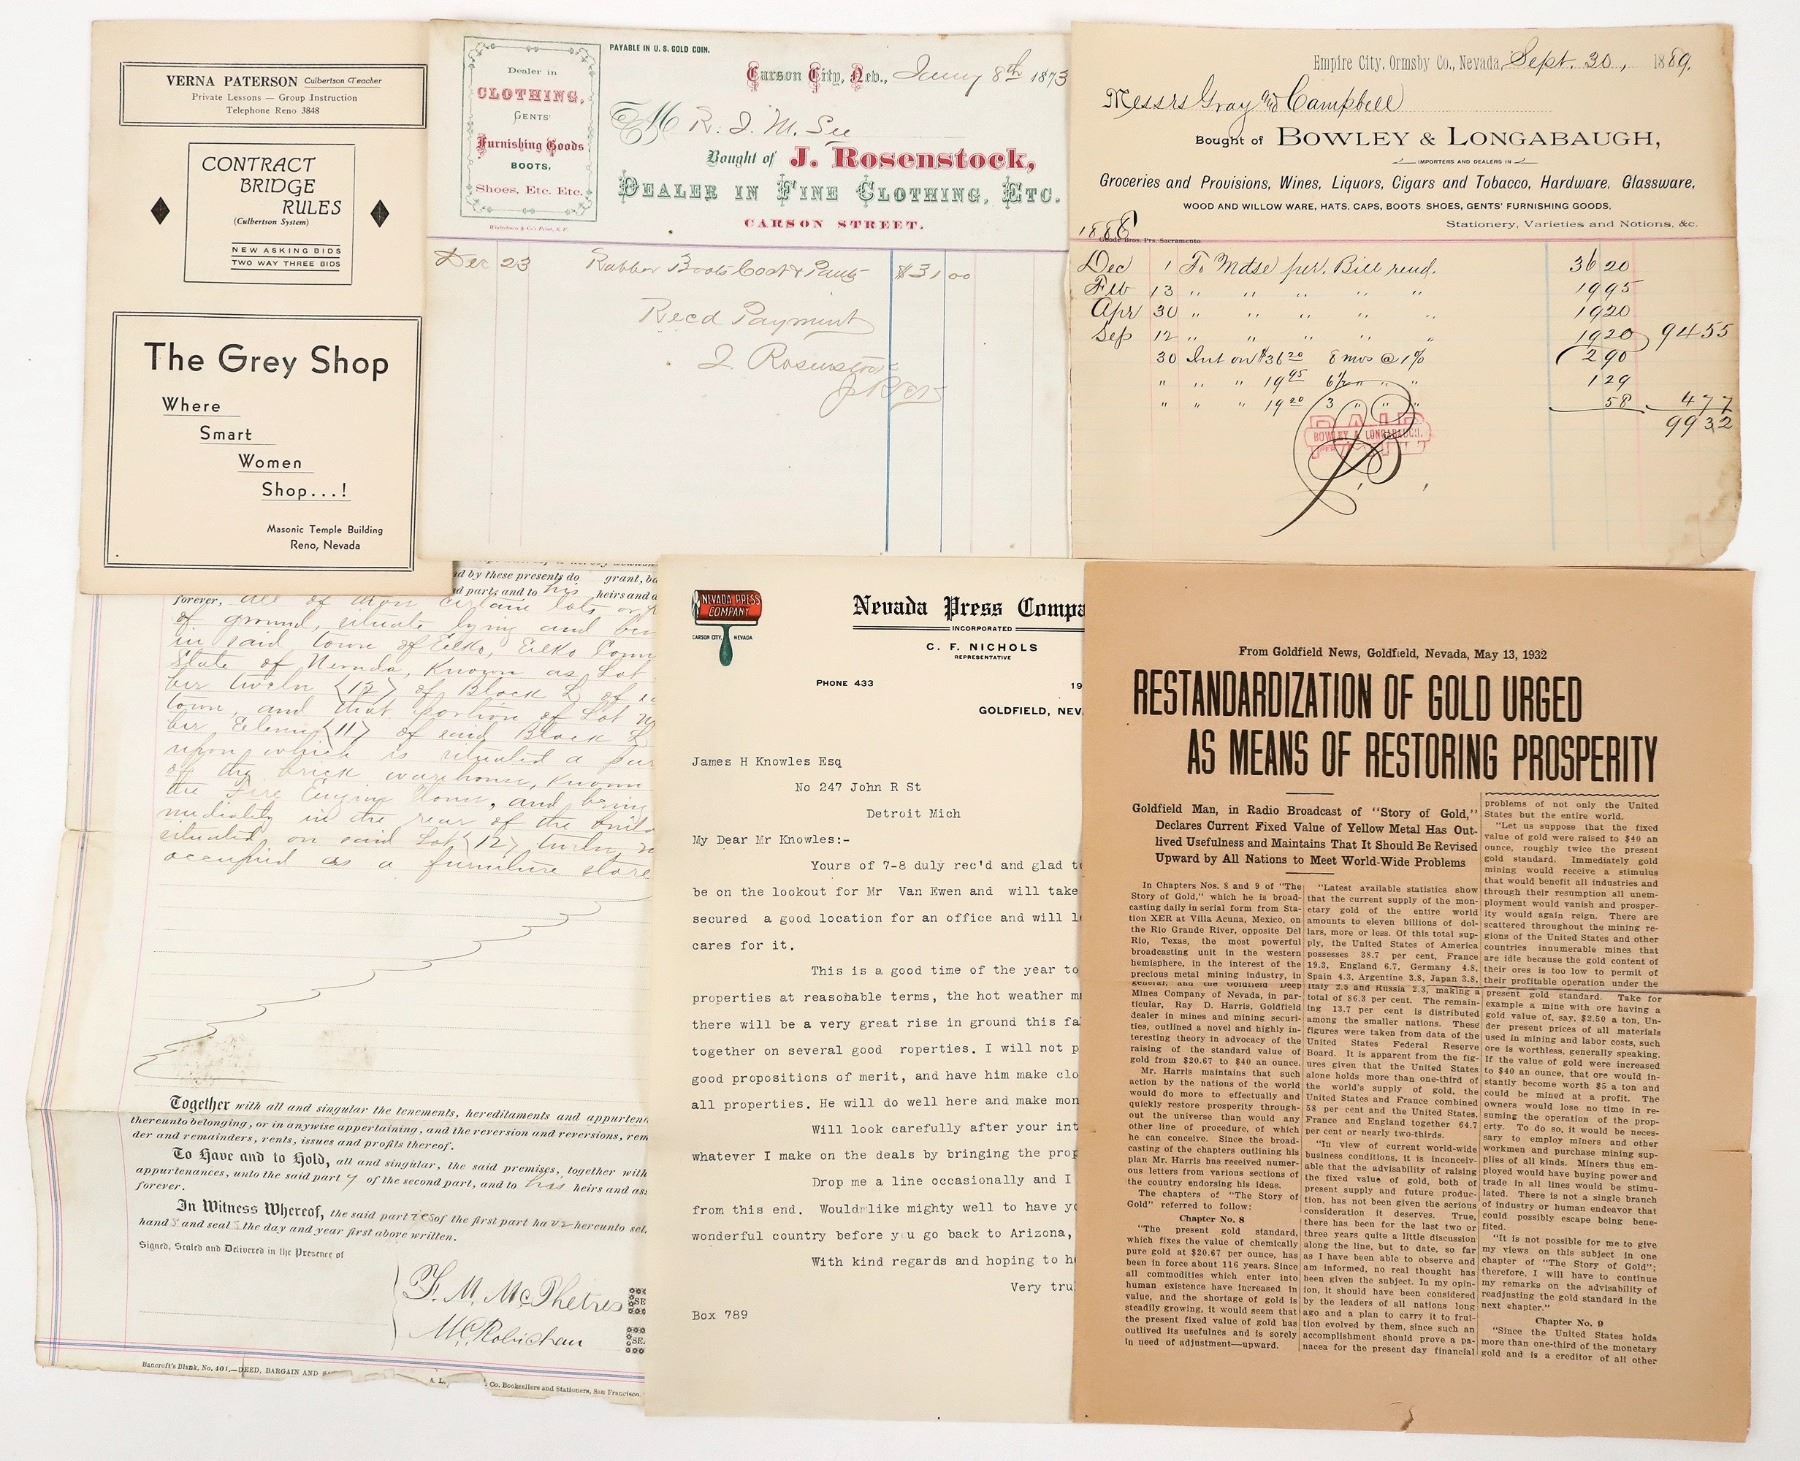 VERNA PATERSON Culbertson Teacher
Private Lessons — Group Instruction
Telephone Reno 3848
CONTRACT
BRIDGE
RULES
(Culbertson System)
NEW ASKING BIDS
TWO WAY THREE BIDS
The Grey Shop
Where
Smart
Women
Shop...!
Masonic Temple Building
Reno, Nevada
Dealer in
CLOTHING,
GENTS'
Furnishing Goods
BOOTS,
Shoes, Etc. Etc.
PAYABLE IN U.S. GOLD COIN.
Carson City, Nev., 8th 1873
M R. J. M. See
Bought of J. Rosenstock,
DEALER IN FINE CLOTHING, ETC.
CARSON STREET.
Dec 23 Rubber Boots Coat & Pants $31 00
Recd Payment
J Rosenstock
Empire City, Ormsby Co., Nevada, Sept. 30, 1889.
Messrs Gray and Campbell
Bought of BOWLEY & LONGABAUGH,
IMPORTERS AND DEALERS IN
Groceries and Provisions, Wines, Liquors, Cigars and Tobacco, Hardware, Glassware,
WOOD AND WILLOW WARE, HATS, CAPS, BOOTS, SHOES, GENTS' FURNISHING GOODS,
Stationery, Varieties and Notions, &c.
1888
Dec 1 To Mdse per. Bill rend. 36 20
Feb 13 " " " " " 19 95
Apr 30 " " " " " 19 20
Sep 12 " " " " " 19 20 94 55
30 Int on $36 20 8 mos @ 1% 2 90
" " " 19 95 6½ " " " 1 29
" " " 19 20 3 " " " 58 4 77
99 32
PAID
BOWLEY & LONGABAUGH,
PER
d by these presents do grant, ba
d part and to his heirs and a
forever, all of them certain lots or
of ground, situate lying and
in said town of Elko, Elko
State of Nevada, known as Lot
ber twelve (12) of Block L of
town, and that portion of Lot
ber Eleven (11) of said Block L
upon which is situated a
of the brick warehouse, known
the Fire Engine House, and being
mediately in the rear of the
situated on said Lot (12) twelve
occupied as a furniture store
Together with all and singular the tenements, hereditaments and appurten
thereunto belonging, or in anywise appertaining, and the reversion and reversions, rem
der and remainders, rents, issues and profits thereof.
To Have and to Hold, all and singular, the said premises, together with
appurtenances, unto the said part y of the second part, and to his heirs and ass
forever.
In Witness Whereof, the said parties of the first part have hereunto set
hands and seals the day and year first above written.
Signed, Sealed and Delivered in the Presence of
F. M. McPhetres
Bancroft's Blank, No. 401.—DEED, BARGAIN AND
Co. Booksellers and Stationers, San Francisco.
NEVADA PRESS
COMPANY
CARSON CITY, NEVADA
Nevada Press Compa
INCORPORATED
C. F. NICHOLS
REPRESENTATIVE
PHONE 433
19
GOLDFIELD, NEV.
James H Knowles Esq
No 247 John R St
Detroit Mich
My Dear Mr Knowles:-
Yours of 7-8 duly rec'd and glad t
be on the lookout for Mr Van Ewen and will take
secured a good location for an office and will l
cares for it.
This is a good time of the year to
properties at reasonable terms, the hot weather m
there will be a very great rise in ground this fa
together on several good roperties. I will not p
good propositions of merit, and have him make clo
all properties. He will do well here and make mon
Will look carefully after your int
whatever I make on the deals by bringing the prop
Drop me a line occasionally and I
from this end. Would like mighty well to have y
wonderful country before y u go back to Arizona,
With kind regards and hoping to h
Very tru
Box 789
From Goldfield News, Goldfield, Nevada, May 13, 1932
RESTANDARDIZATION OF GOLD URGED
AS MEANS OF RESTORING PROSPERITY
Goldfield Man, in Radio Broadcast of "Story of Gold,"
Declares Current Fixed Value of Yellow Metal Has Out-
lived Usefulness and Maintains That It Should Be Revised
Upward by All Nations to Meet World-Wide Problems
In Chapters Nos. 8 and 9 of "The
Story of Gold," which he is broad-
casting daily in serial form from Sta-
tion XER at Villa Acuna, Mexico, on
the Rio Grande River, opposite Del
Rio, Texas, the most powerful
broadcasting unit in the western
hemisphere, in the interest of the
precious metal mining industry, in
general, and the Goldfield Deep
Mines Company of Nevada, in par-
ticular, Ray D. Harris, Goldfield
dealer in mines and mining securi-
ties, outlined a novel and highly in-
teresting theory in advocacy of the
raising of the standard value of
gold from $20.67 to $40 an ounce.
Mr. Harris maintains that such
action by the nations of the world
would do more to effectually and
quickly restore prosperity through-
out the universe than would any
other line of procedure, of which
he can conceive. Since the broad-
casting of the chapters outlining his
plan Mr. Harris has received numer-
ous letters from various sections of
the country endorsing his ideas.
The chapters of "The Story of
Gold" referred to follow:
Chapter No. 8
"The present gold standard,
which fixes the value of chemically
pure gold at $20.67 per ounce, has
been in force about 116 years. Since
all commodities which enter into
human existence have increased in
value, and the shortage of gold is
steadily growing, it would seem that
the present fixed value of gold has
outlived its usefulnes and is sorely
in need of adjustment—upward.
"Latest available statistics show
that the current supply of the mon-
etary gold of the entire world
amounts to eleven billions of dol-
lars, more or less. Of this total sup-
ply, the United States of America
possesses 38.7 per cent, France
19.3, England 6.7, Germany 4.8,
Spain 4.3, Argentine 3.8, Japan 3.8,
Italy 2.5 and Russia 2.3, making a
total of 86.3 per cent. The remain-
ing 13.7 per cent is distributed
among the smaller nations. These
figures were taken from data of the
United States Federal Reserve
Board. It is apparent from the fig-
ures given that the United States
alone holds more than one-third of
the world's supply of gold, the
United States and France combined
58 per cent and the United States,
France and England together 64.7
per cent or nearly two-thirds.
"In view of current world-wide
business conditions, it is inconceiv-
able that the advisability of raising
the fixed value of gold, both of
present supply and future produc-
tion, has not been given the serious
consideration it deserves. True,
there has been for the last two or
three years quite a little discussion
along the line, but to date, so far
as I have been able to observe and
am informed, no real thought has
been given the subject. In my opin-
ion, it should have been considered
by the leaders of all nations long
ago and a plan to carry it to frui-
tion evolved by them, since such an
accomplishment should prove a pa-
nacea for the present day financial
problems of not only the United
States but the entire world.
"Let us suppose that the fixed
value of gold were raised to $40 an
ounce, roughly twice the present
gold standard. Immediately gold
mining would receive a stimulus
that would benefit all industries and
through their resumption all unem-
ployment would vanish and prosper-
ity would again reign. There are
scattered throughout the mining re-
gions of the United States and other
countries innumerable mines that
are idle because the gold content of
their ores is too low to permit of
their profitable operation under the
present gold standard. Take for
example a mine with ore having a
gold value of, say, $2.50 a ton. Un-
der present prices of all materials
used in mining and labor costs, such
ore is worthless, generally speaking.
If the value of gold were increased
to $40 an ounce, that ore would in-
stantly become worth $5 a ton and
could be mined at a profit. The
owners would lose no time in re-
suming the operation of the prop-
erty. To do so, it would be neces-
sary to employ miners and other
workmen and purchase mining sup-
plies of all kinds. Miners thus em-
ployed would have buying power and
trade in all lines would be stimu-
lated. There is not a single branch
of industry or human endeavor that
could possibly escape being bene-
fited.
"It is not possible for me to give
my views on this subject in one
chapter of "The Story of Gold";
therefore, I will have to continue
my remarks on the advisability of
readjusting the gold standard in the
next chapter."
Chapter No. 9
"Since the United States holds
more than one-third of the monetary
gold and is a creditor of all other